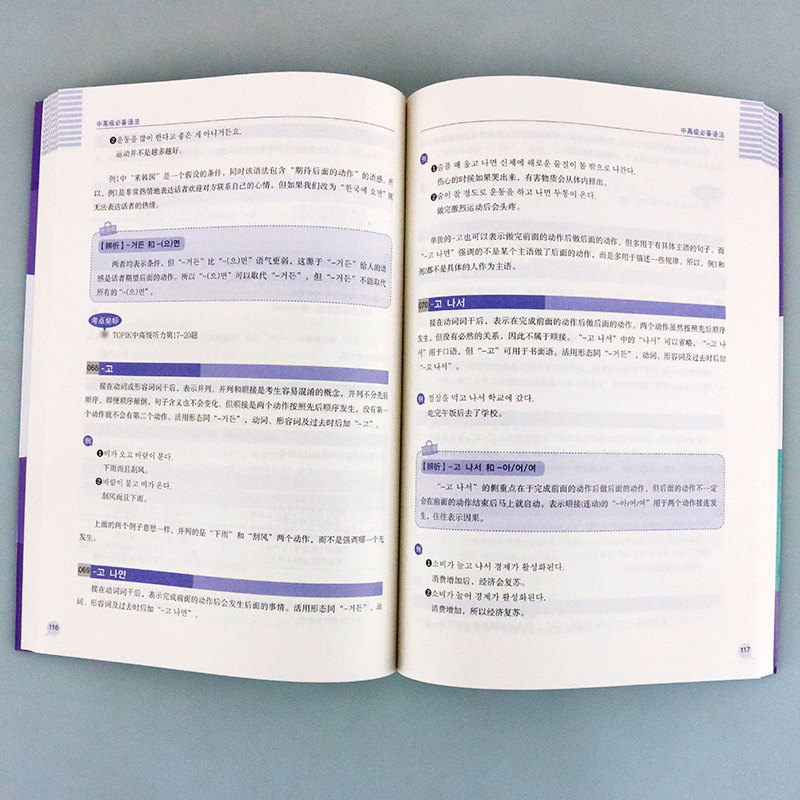 中高级必备语法
❷운동을 많이 한다고 좋은 게 아니거든요.
运动并不是越多越好。
例1中“来韩国”是一个假设的条件，同时该语法包含“期待后面的动作”的语感。所
以，例1是非常热情地表达话者欢迎对方联系自己的心情。但如果我们改为“한국에 오면”则
无法表达话者的热情。
【辨析】-거든 和 -(으)면
两者均表示条件，但“-거든”比“-(으)면”语气更弱，这源于“-거든”给人的语
感是话者期望后面的动作。所以“-(으)면”可以取代“-거든”，但“-거든”不能取代
所有的“-(으)면”。
考点坐标
TOPIK中高级听力第17-20题
068 -고
接在动词或形容词词干后，表示并列。并列和顺接是考生容易混淆的概念，并列不分先后
顺序，即便顺序颠倒，句子含义也不会变化。但顺接是两个动作按照先后顺序发生，没有第一
个动作就不会有第二个动作。活用形态同“-거든”，动词、形容词及过去时后加“-고”。
例
❶비가 오고 바람이 분다.
下雨而且刮风。
❷바람이 불고 비가 온다.
刮风而且下雨。
上面的两个例子意想一样，并列的是“下雨”和“刮风”两个动作，而不是强调哪一个先
发生。
069 -고 나면
接在动词词干后，表示完成前面的动作后会发生后面的事情。活用形态同“-거든”，动
词、形容词及过去时后加“-고 나면”。
116
中高级必备语法
例
❶슬플 때 울고 나면 신체에 해로운 물질이 몸 밖으로 나간다.
伤心的时候如果哭出来，有害物质会从体内排出。
❷숨이 찰 정도로 운동을 하고 나면 두통이 온다.
做完激烈运动后会头疼。
单独的-고也可以表示做完前面动作后做后面的动作，但多用于有具体主语的句子，而
“-고 나면”强调的不是某个主语做了后面的动作，而是多用于描述一些规律。所以，例1和
例2都不是具体的人作为主语。
070 -고 나서
接在动词词干后，表示在完成前面的动作后做后面的动作。两个动作虽然按照先后顺序
发生，但没有必然的关系，因此不属于顺接。“-고 나서”中的“나서”可以省略，“-고 나
서”用于口语，但“-고”可用于书面语。活用形态同“-거든”，动词、形容词及过去时后加
“-고 나서”。
例 점심을 먹고 나서 학교에 갔다.
吃完午饭后去了学校。
【辨析】-고 나서 和 -아/어/여
“-고 나서”的侧重点在于完成前面的动作后做后面的动作，但后面的动作不一定
会在前面的动作结束后马上就启动。表示顺接(连动)的“-아/어/여”用于两个动作接连发
生，往往表示因果。
例
❶소비가 늘고 나서 경제가 활성화된다.
消费增加后，经济会复苏。
❷소비가 늘어 경제가 활성화된다.
消费增加，所以经济复苏。
117